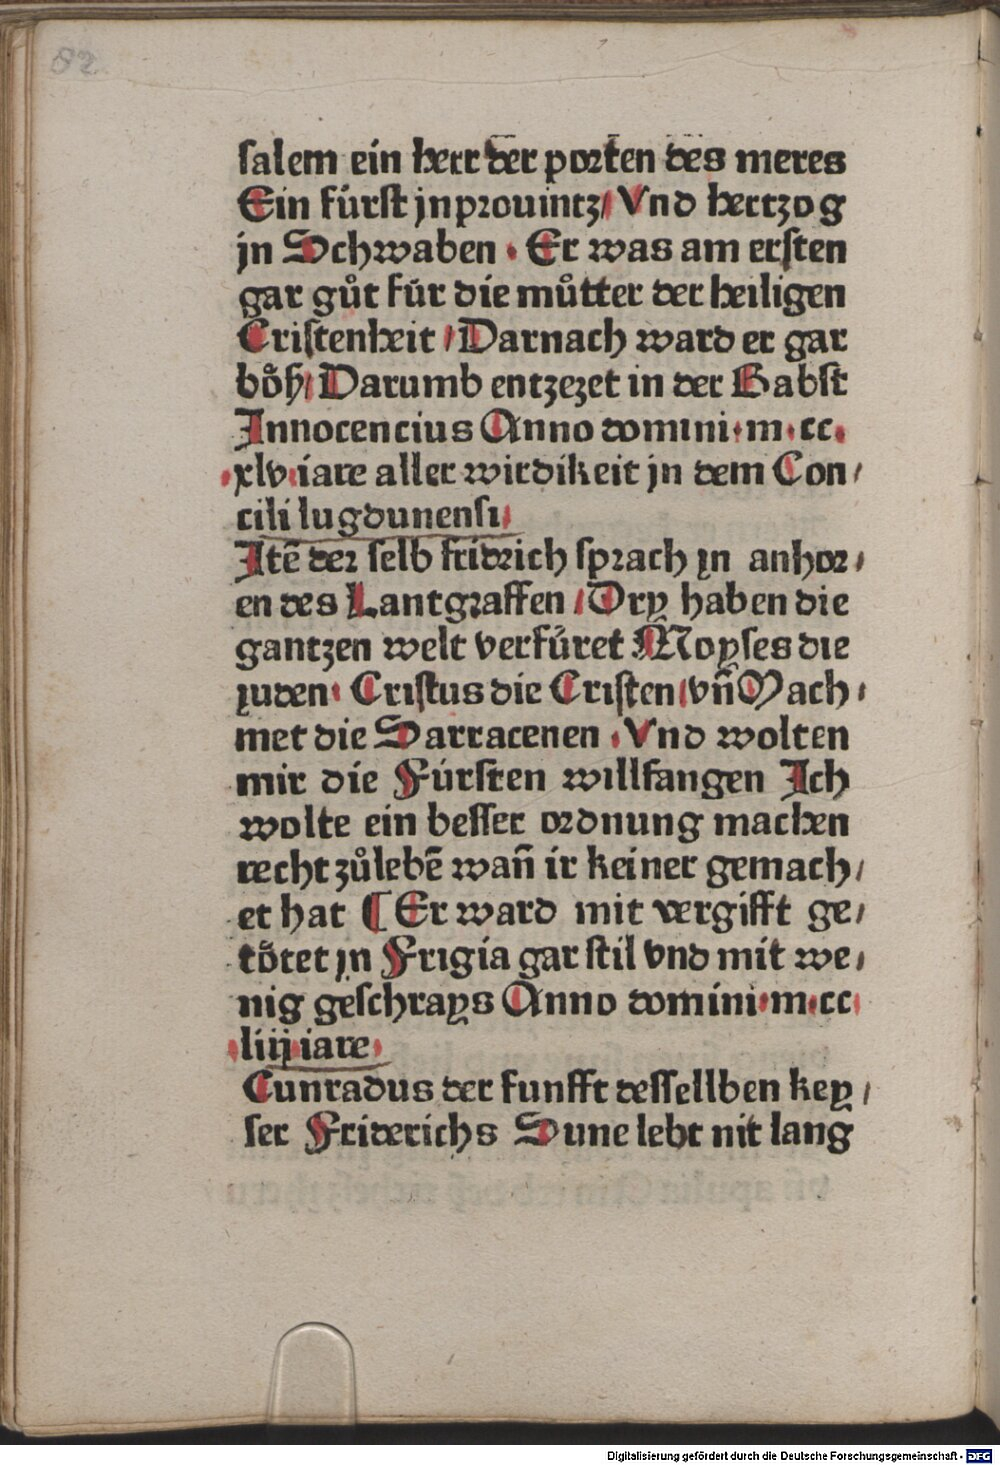 82
salem ein herr der porten des meres
Ein fúrst jnprouintz/ Vnd hertzog
jn Schwaben · Er was am ersten
gar gůt fúr die můtter der heiligen
Cristenheit / Darnach ward er gar
bo̊ß/ Darumb entzezet in der Babst
Innocencius Anno domini·m·cc·
·xlv·iare aller wirdikeit jn dem Con/
cili lugdunensi/
Itē der selb fridrich sprach jn anhor/
en des Lantgraffen / Dry haben die
gantzen welt verfúret Moyses die
juden· Cristus die Cristen/vn̄ Mach/
met die Sarracenen ·Vnd wolten
mir die Fúrsten willfangen Ich
wolte ein besser ordnung machen
recht zůlebē wan̄ ir keiner gemach/
et hat ¶ Er ward mit vergifft ge/
to̊tet jn Frigia gar stil vnd mit we/
nig geschrays Anno domini·m·cc·
·liiij·iare·
Cunradus der funfft dessellben key/
ser Friderichs Sune lebt nit lang
Digitalisierung gefördert durch die Deutsche Forschungsgemeinschaft - DFG